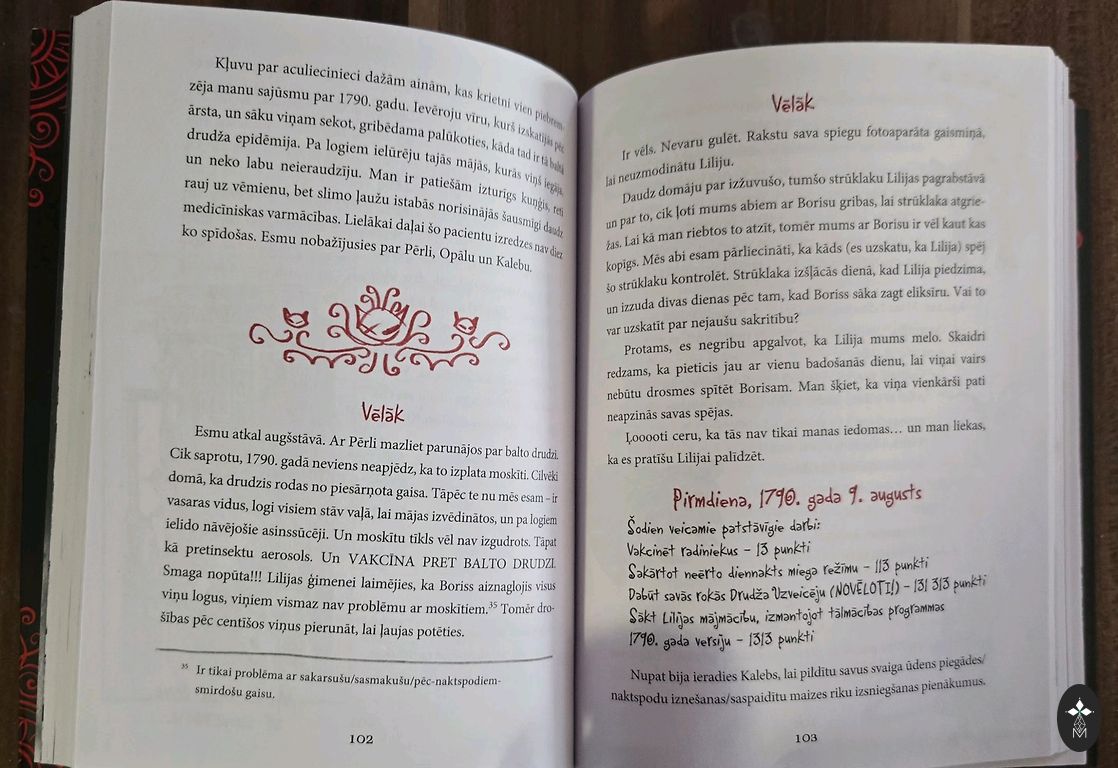 Kļuvu par aculiecinieci dažām ainām, kas krietni vien piebrem-
zēja manu sajūsmu par 1790. gadu. Ievēroju vīru, kurš izskatījās pēc
ārsta, un sāku viņam sekot, gribēdama palūkoties, kāda tad ir tā baltā
drudža epidēmija. Pa logiem ielūrēju tajās mājās, kurās viņš iegāja,
un neko labu neieraudzīju. Man ir patiešām izturīgs kuņģis, reti
rauj uz vēmienu, bet slimo ļaužu istabās norisinājās šausmīgi daudz
medicīniskas varmācības. Lielākai daļai šo pacientu izredzes nav diez
ko spīdošas. Esmu nobažījusies par Pērli, Opālu un Kalebu.
Vēlāk
Esmu atkal augšstāvā. Ar Pērli mazliet parunājos par balto drudzi.
Cik saprotu, 1790. gadā neviens neapjēdz, ka to izplata moskīti. Cilvēki
domā, ka drudzis rodas no piesārņota gaisa. Tāpēc te nu mēs esam – ir
vasaras vidus, logi visiem stāv vaļā, lai mājas izvēdinātos, un pa logiem
ielido nāvējošie asinssūcēji. Un moskītu tīkls vēl nav izgudrots. Tāpat
kā pretinsektu aerosols. Un VAKCĪNA PRET BALTO DRUDZI.
Smaga nopūta!!! Lilijas ģimenei laimējies, ka Boriss aiznaglojis visus
viņu logus, viņiem vismaz nav problēmu ar moskītiem.³⁵ Tomēr dro-
šības pēc centīšos viņus pierunāt, lai ļaujas potēties.
³⁵ Ir tikai problēma ar sakarsušu/sasmakušu/pēc-naktspodiem-
smirdošu gaisu.
102
Vēlāk
Ir vēls. Nevaru gulēt. Rakstu sava spiegu fotoaparāta gaismiņā,
lai neuzmodinātu Liliju.
Daudz domāju par izžuvušo, tumšo strūklaku Lilijas pagrabstāvā
un par to, cik ļoti mums abiem ar Borisu gribas, lai strūklaka atgrie-
žas. Lai kā man riebtos to atzīt, tomēr mums ar Borisu ir vēl kaut kas
kopīgs. Mēs abi esam pārliecināti, ka kāds (es uzskatu, ka Lilija) spēj
šo strūklaku kontrolēt. Strūklaka izšļācās dienā, kad Lilija piedzima,
un izzuda divas dienas pēc tam, kad Boriss sāka zagt eliksīru. Vai to
var uzskatīt par nejaušu sakritību?
Protams, es negribu apgalvot, ka Lilija mums melo. Skaidri
redzams, ka pieticis jau ar vienu badošanās dienu, lai viņai vairs
nebūtu drosmes spītēt Borisam. Man šķiet, ka viņa vienkārši pati
neapzinās savas spējas.
Ļooooti ceru, ka tās nav tikai manas iedomas... un man liekas,
ka es pratīšu Lilijai palīdzēt.
Pirmdiena, 1790. gada 9. augusts
Šodien veicamie patstāvīgie darbi:
Vakcinēt radiniekus – 13 punkti
Sakārtot neērto diennakts miega režīmu – 113 punkti
Dabūt savās rokās Drudža Uzveicēju (NOVĒLOTI!) – 131 313 punkti
Sākt Lilijas mājmācību, izmantojot tālmācības programmas
1790. gada versiju – 1313 punkti
Nupat bija ieradies Kalebs, lai pildītu savus svaiga ūdens piegādes/
naktspodu iznešanas/saspaidītu maizes riku izsniegšanas pienākumus.
103
M